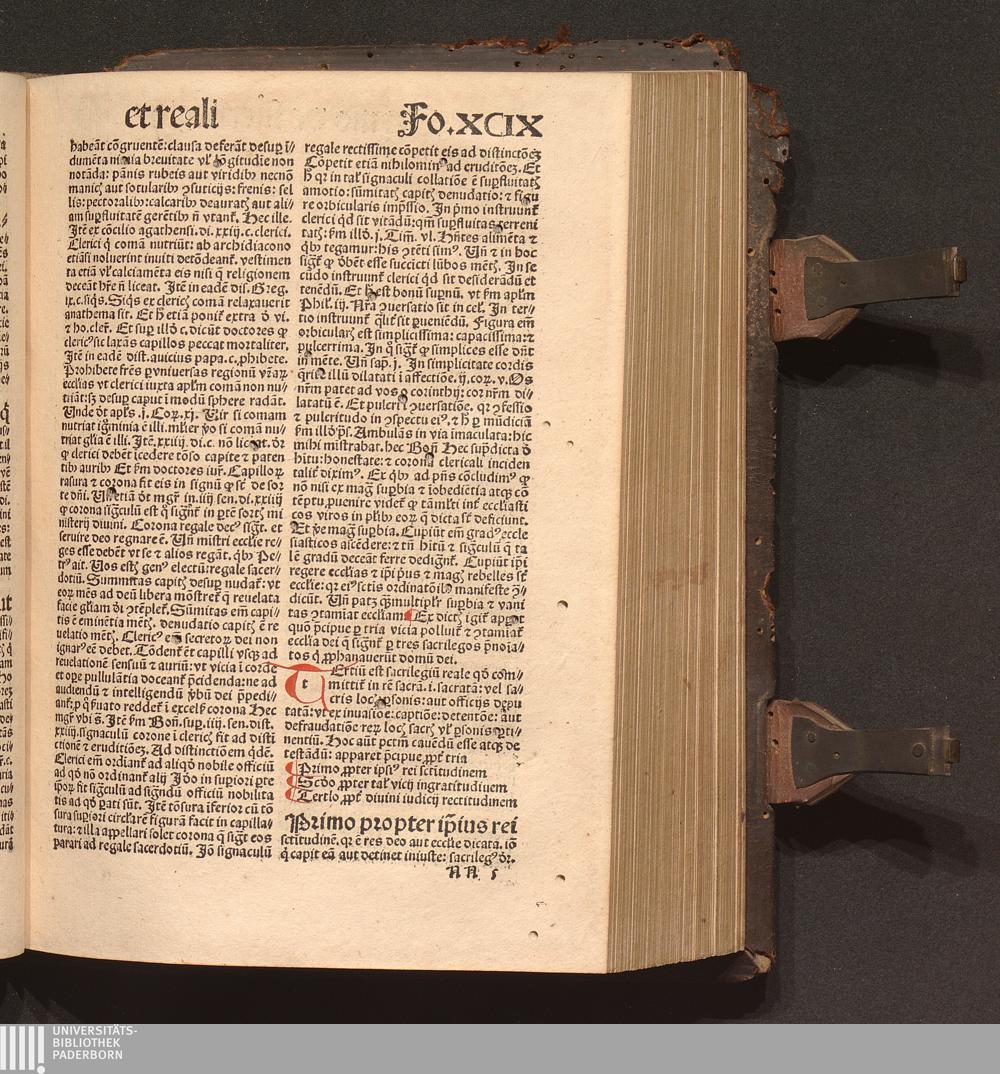 et reali
Fo.XCIX
habeāt cōgruentē: clausa deferāt desuꝑ ī⸗
dumēta nimia breuitate vl' lōgitudīe non
notāda: pānis rubeis aut viridibꝰ necnō
manicꝭ aut sotularibꝰ ꝯsuticijs: frenis: sel
lis: pectoralibꝰ: calcaribꝰ deauratꝭ aut ali⸗
am suꝑfluitatē gerētibꝰ n̄ vtant᷑. Hec ille.
Itē ex cōcilio agathensi. di. xxiij. c. clerici.
Clerici q̄ comā nutriūt: ab archidiacono
etiāsi noluerint inuiti detōdeant᷑. vestimen
ta etiā vl' calciamēta eis nisi q̄ religionem
deceāt hr̄e n̄ liceat. Itē in eadē dis. Greg.
ix. c. siq̄s. Siq̄s ex clericꝭ comā relaxauerit
anathema sit. Et ħ etiā ponit᷑ extra ð vi.
⁊ ho. cler̄. Et suꝑ illō c. dicūt doctores ꝙ
clericꝰ sic laxās capillos peccat mortaliter.
Itē in eadē dist. auicius papa. c. ꝓhibete.
Prohibete fr̄es ꝑ vniuersas regionū vr̄aꝝ
ecclīas vt clerici iuxta apl'm comā non nu⸗
triāt: sꝫ desuꝑ caput ī modū sphere radāt.
Unde ðt apl's .j. Coꝝ. xj. Uir si comam
nutriat igīninia ē illi. ml'ier ꝟo si comā nu⸗
triat gl'ia ē illi. Itē. xxiij. di. c. nō liceat. ðr
ꝙ clerici debēt īcedere tōso capite ⁊ paten
tibꝰ auribꝰ Et ẜm doctores iur̄. Capilloꝝ
rasura ⁊ corona fit eis in signū ꝙ st̄ de sor
te dn̄i. Uñ etiā ðt mgr̄ in .iiij sen. di. xxiiij
ꝙ corona sīgculū est q̄ sīgnt᷑ in ꝑtē sortꝭ mi
nisterij diuini. Corona regale decꝰ sīgt. et
seruire deo regnare ē. Uñ mīstri ecclīe re⸗
ges esse debēt vt se ⁊ alios regāt. qͥbꝰ Pe⸗
trꝰ ait. Uos estꝭ genꝰ electū: regale sacer⸗
dotiū. Summitas capitꝭ desuꝑ nudat᷑: vt
eoꝝ mēs ad deū libera mōstret᷑ q̄ reuelata
facie gl'iam ði ꝯtēplet᷑. Sūmitas em̄ capi⸗
tis ē eminētia mētꝭ. denudatio capitꝭ ē re
uelatio mētꝭ. Clericꝰ em̄ secretoꝝ dei non
ignarꝰ eē debet. Tōdent᷑ ēt capilli vsqꝫ ad
reuelationē sensuū ⁊ auriū: vt vicia ī corde
et oꝑe pullulātia doceant᷑ p̄cidenda: ne ad
audiendū ⁊ intelligendū ꝟbū dei p̄pedi⸗
ant᷑: ꝓ q̄ ẜuato reddet᷑ ī excelꝭ corona Hec
mgr̄ vbi s̄. Itē ẜm Bon̄. suꝑ. iiij. sen. dist.
xxiiij. signaculū corone ī clericꝭ fit ad disti
ctionē ⁊ eruditiōeꝫ. Ad distinctiōem q̄dē.
Clerici em̄ ordiant᷑ ad aliqd̄ nobile officiū
ad qd̄ nō ordinant᷑ alij Iō̄o in suꝑiori ꝑte
ip̄oꝝ fit sīgculū ad sīgndū officiū nobilita
tis ad qd̄ ꝑati sūt. Itē tōsura iferior cū tō
sura suꝑiori circl'arē figurā facit in capilla⸗
tura: ⁊ illa appellari solet corona q̄ sīgt eos
parari ad regale sacerdotiū. Iō̄ signaculū
regale rectissime cōpetit eis ad distinctōeꝫ
Cōpetit etiā nihilominꝰ ad eruditōeꝫ. Et
ħ qr in tal' signaculi collatiōe ē suꝑfluitatꝭ
amotio: sūmitatꝭ capitꝭ denudatio: ⁊ figu
re orbicularis imp̄ssio. In p̄mo instruunt᷑
clerici qd̄ sit vitādū: qm̄ suꝑfluitas terreni
tatꝭ: ẜm illō. j. Tim̄. vl. Hn̄tes alimēta ⁊
qͥbꝰ tegamur: his ꝯtēti simꝰ. Uñ ⁊ in hoc
sīgt᷑ ꝙ ðbēt esse succīcti lūbos mētꝭ. In se
cūdo instruunt᷑ clerici qd̄ sit desiderādū et
tenēdū. Et ħ est bonū suꝑnū. vt ẜm apl'm
Phil'. iij. Nr̄a ꝯuersatio sit in cel'. In ter⸗
tio instruunt᷑ ql'it᷑ sit ꝑueniēdū. Figura em̄
orbicularꝭ est simplicissima: capacissima: ⁊
pulcerrima. In q̄ sīgt᷑ ꝙ simplices esse dn̄t
in mēte. Uñ sap̄. j. In simplicitate cordis
q̄rite illū dilatati ī affectiōe. ij. coꝝ. v. Os
nr̄m patet ad vos o corinthij: cor nr̄m di⸗
latatū ē. Et pulcri ī ꝯuersatiōe. qr ꝯfessio
⁊ pulcritudo in ꝯspectu eiꝰ. ⁊ ħ ꝑ mūdiciā
ẜm illō ps̄. Ambulās in via īmaculata: hic
mihi mīstrabat. hec Bon̄ Hec sup̄dicta ð
hītu: honestate: ⁊ corona clericali inciden
talit᷑ diximꝰ. Ex qͥbꝰ ad pn̄s cōcludimꝰ ꝙ
nō nisi ex magꝭ suꝑbia ⁊ iobediētia atqꝫ cō
tēptu ꝓuenire videt᷑ ꝙ tāml'ti int᷑ ecclīasti
cos viros in pl'ibꝰ eoꝝ q̄ dicta st̄ deficiunt.
Et ꝟe magꝭ suꝑbia. Cupiūt em̄ gradꝰ eccle
siasticos ascēdere: ⁊ tn̄ hītū ⁊ sīgculū q̄ ta
lē gradū deceāt ferre dedignt᷑. Cupiūt ip̄i
regere ecclīas ⁊ ip̄i p̄us ⁊ magꝭ rebelles st̄
ecclīe: qr eiꝰ scīs ordinatōibꝰ manifeste ꝯ̄⸗
dicūt. Uñ patꝫ qꝫ multipl'r suꝑbia ⁊ vani
tas ꝯtamīat ecclīam ¶Ex dictꝭ igit᷑ apꝑet
quō p̄cipue ꝑ tria vicia polluit᷑ ⁊ ꝯtamiat᷑
ecclīa dei q̄ sīgnt᷑ ꝑ tres sacrilegos p̄noīa⸗
tos q̄ ꝓphanauerūt domū dei.
Tertiū est sacrilegiū reale qd̄ com⸗
mittit᷑ in rē sacrā. i. sacratā: vel sa⸗
cris locꝭ ꝑsonis: aut officijs depu
tatā: vt ex inuasiōe: captiōe: detentōe: aut
defraudatiōe reꝝ locꝭ sacrꝭ vl' ꝑsonis ꝑti⸗
nentiū. Hoc aūt pctm̄ cauēdū esse atqꝫ de
testādū: apparet p̄cipue ꝓpt᷑ tria
¶Primo ꝓpter ipsiꝰ rei sctitudinem
¶Scd̄o ꝓpter tal' vicij ingratitudiuem
¶Tertlo ꝓpt᷑ diuini iudicij rectitudinem
Primo propter ip̄ius rei
sctitudinē. qr ē res deo aut ecclīe dicata. iō
q̄ capit eā aut detinet iniuste: sacrilegꝰ ðr.
NN 5
UNIVERSITÄTS-
BIBLIOTHEK
PADERBORN